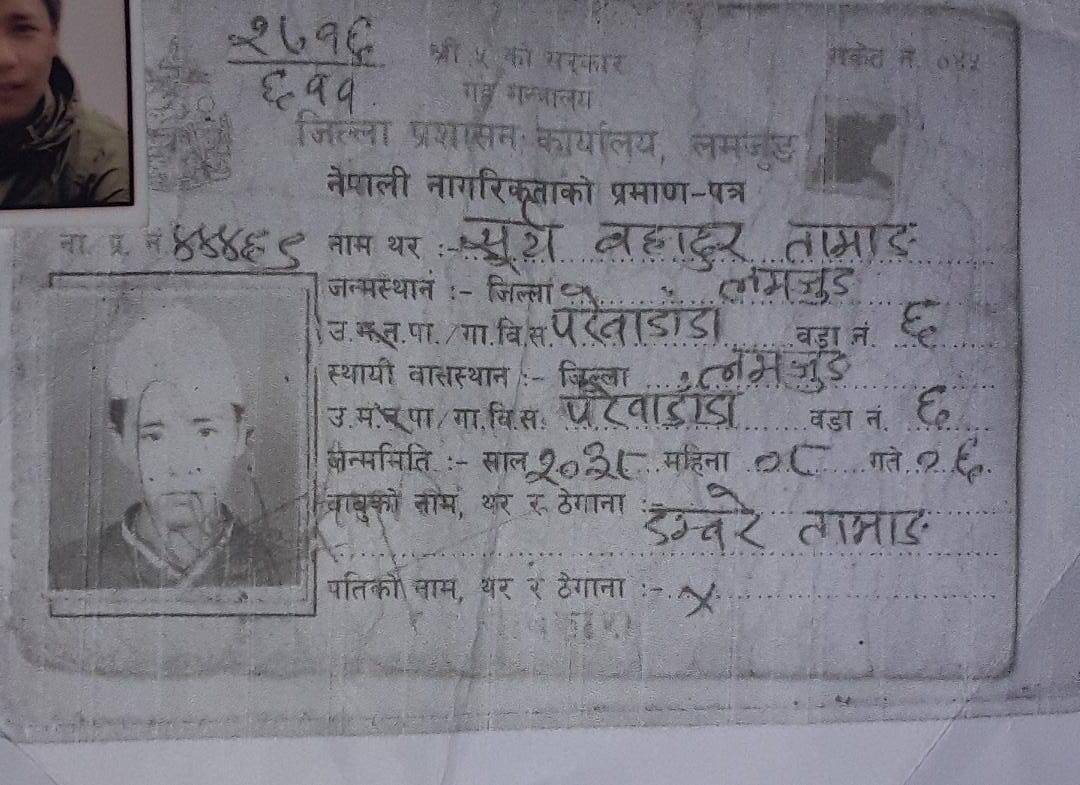 २७१६
६११
श्री ५ को सरकार
गृह मन्त्रालय
संकेत नं. ०४५
जिल्ला प्रशासन कार्यालय, लमजुङ
नेपाली नागरिकताको प्रमाण-पत्र
ना. प्र. नं ४४४६९ नाम थर :- सूर्य बहादुर तामाङ
जन्मस्थान :- जिल्ला लमजुङ
उ.म.न.पा./गा.वि.स. परेवाडाँडा वडा नं. ६
स्थायी वासस्थान :- जिल्ला लमजुङ
उ.म.न.पा/गा.वि.स. परेवाडाँडा वडा नं. ६
जन्ममिति :- साल २०३८ महिना ०८ गते ०६
बाबुको नाम, थर र ठेगाना :- डम्बरे तामाङ
पतिको नाम, थर र ठेगाना :- ×